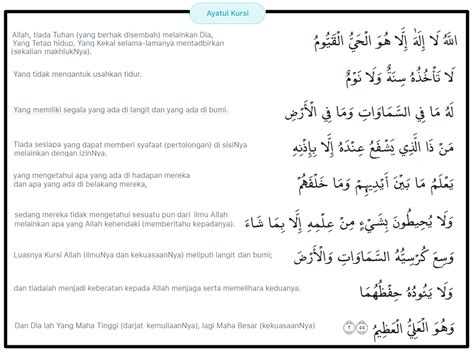 Ayatul Kursi
Allah, tiada Tuhan (yang berhak disembah) melainkan Dia,
Yang Tetap hidup, Yang Kekal selama-lamanya mentadbirkan
(sekalian makhlukNya).
اللَّهُ لَا إِلَٰهَ إِلَّا هُوَ الْحَيُّ الْقَيُّومُ
Yang tidak mengantuk usahkan tidur.
لَا تَأْخُذُهُ سِنَةٌ وَلَا نَوْمٌ
Yang memiliki segala yang ada di langit dan yang ada di bumi.
لَهُ مَا فِي السَّمَاوَاتِ وَمَا فِي الْأَرْضِ
Tiada sesiapa yang dapat memberi syafaat (pertolongan) di sisiNya
melainkan dengan izinNya.
مَنْ ذَا الَّذِي يَشْفَعُ عِنْدَهُ إِلَّا بِإِذْنِهِ
yang mengetahui apa yang ada di hadapan mereka
dan apa yang ada di belakang mereka,
يَعْلَمُ مَا بَيْنَ أَيْدِيهِمْ وَمَا خَلْفَهُمْ
sedang mereka tidak mengetahui sesuatu pun dari ilmu Allah
melainkan apa yang Allah kehendaki (memberitahu kepadanya).
وَلَا يُحِيطُونَ بِشَيْءٍ مِنْ عِلْمِهِ إِلَّا بِمَا شَاءَ
Luasnya Kursi Allah (ilmuNya dan kekuasaanNya) meliputi langit dan bumi;
وَسِعَ كُرْسِيُّهُ السَّمَاوَاتِ وَالْأَرْضَ
dan tiadalah menjadi keberatan kepada Allah menjaga serta memelihara keduanya.
وَلَا يَئُودُهُ حِفْظُهُمَا
Dan Dia lah Yang Maha Tinggi (darjat kemuliaanNya), lagi Maha Besar (kekuasaanNya)
وَهُوَ الْعَلِيُّ الْعَظِيمُ